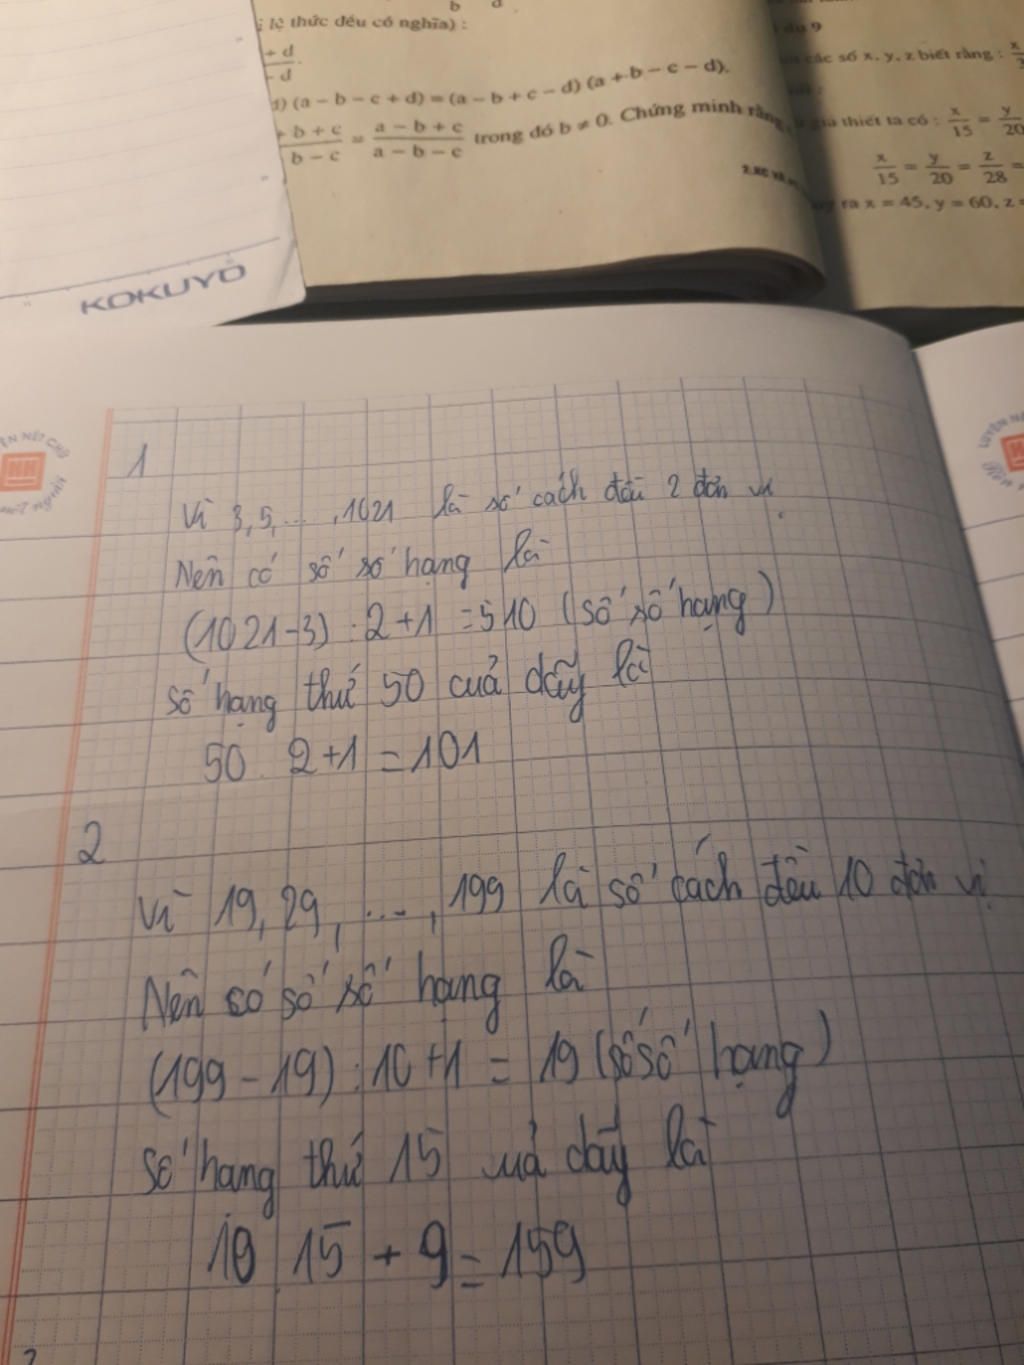 b d
; lệ thức đều có nghĩa) :
+ d
- d
d) (a - b - c + d) = (a - b + c - d) (a + b - c - d).
+ b + c / b - c = a - b + c / a - b - c trong đó b ≠ 0. Chứng minh rằng
dụ 9
các số x, y, z biết rằng : x
giả thiết ta có : x/15 = y/20
x/15 = y/20 = z/28 =
ra x = 45, y = 60, z =
KOKUYO
1
Vì 3, 5, ..., 1021 là số cách đều 2 đơn vị
Nên có số số hạng là
(1021-3) : 2+1 = 510 (số số hạng)
số hạng thứ 50 cuả dãy là
50 . 2+1 = 101
2
Vì 19, 29, ..., 199 là số cách đều 10 đơn vị
Nên só số số hạng là
(199 - 19) : 10 +1 = 19 (số số hạng)
Số hạng thứ 15 cuả dãy là
10 15 + 9 = 159